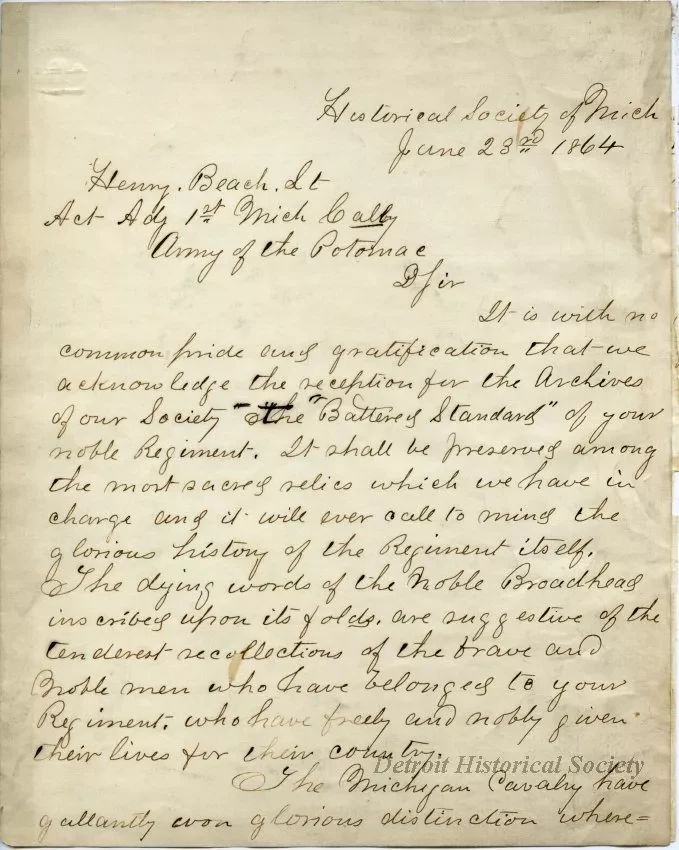 Historical Society of Mich
June 23rd 1864
Henry. Beach. Lt
Act Adj 1st Mich Cally
Army of the Potomac
D Sir
It is with no
common pride and gratification that we
acknowledge the reception for the Archives
of our Society "the "Battered Standard" of your
noble Regiment. It shall be preserved among
the most sacred relics which we have in
charge and it will ever call to mind the
glorious history of the Regiment itself.
The dying words of the Noble Broadhead
inscribed upon its folds. are suggestive of the
tenderest recollections of the brave and
Noble men who have belonged to your
Regiment. who have freely and nobly given
their lives for their country.
Detroit Historical Society
The Michigan Cavalry have
gallantly won glorious distinction where=